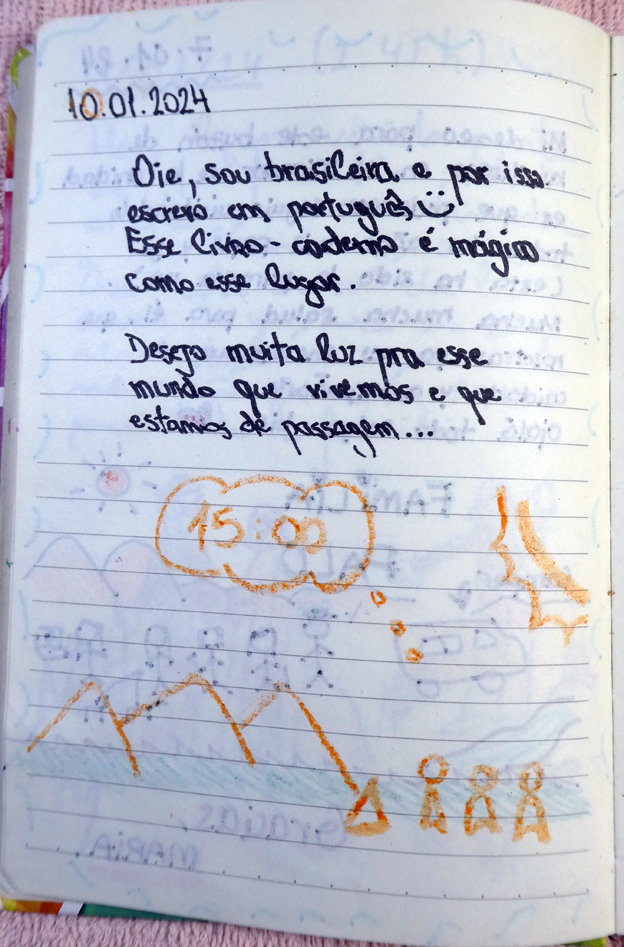 10.01.2024
Oie, sou brasileira e por isso
escrevo em português
Esse livro - caderno é mágico
como esse lugar.
Desejo muita luz pra esse
mundo que vivemos e que
estamos de passagem...
15:00